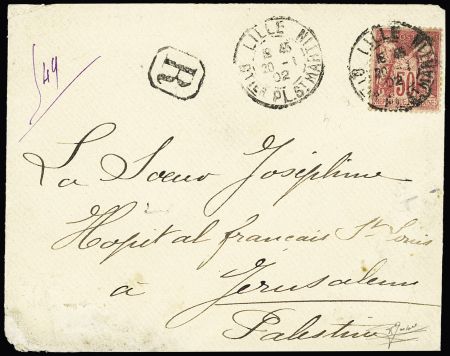 LILLE
16 45
20 - 1
02
PL. ST MARTIN
LILLE
02
50
R
544
La Soeur Joséphine
Hopital français St Louis
à Jérusalem
Palestine